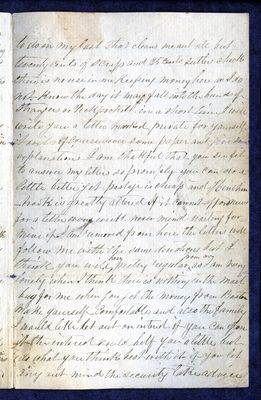 to do in my last that clears me out all but
twenty cents of Scrip and 25 cents Sutler checks
there is no use in me keeping money here as I do
not know the day it may fall into the hands of
strangers or Neck pockets in a short time I will
write you a letter marked private for yourself
I want of course some paper out
explanations I am thankful that you see fit
to answer my letters so promptly you can do a
little better yet postage is cheap and
is greatly altered if it cannot afford
for a letter every week never mind waiting for
mine if I am removed from here the letters will
follow me with the same directions but I
think you were pretty regular, as I am very
lonely when I think there is nothing in the mail
bag for me when you get the money from
make yourself comfortable and also the family
would like let out on interest if you can spare
it the interest would help you a little but
do what you think best with it if you let
any out mind the security take advice